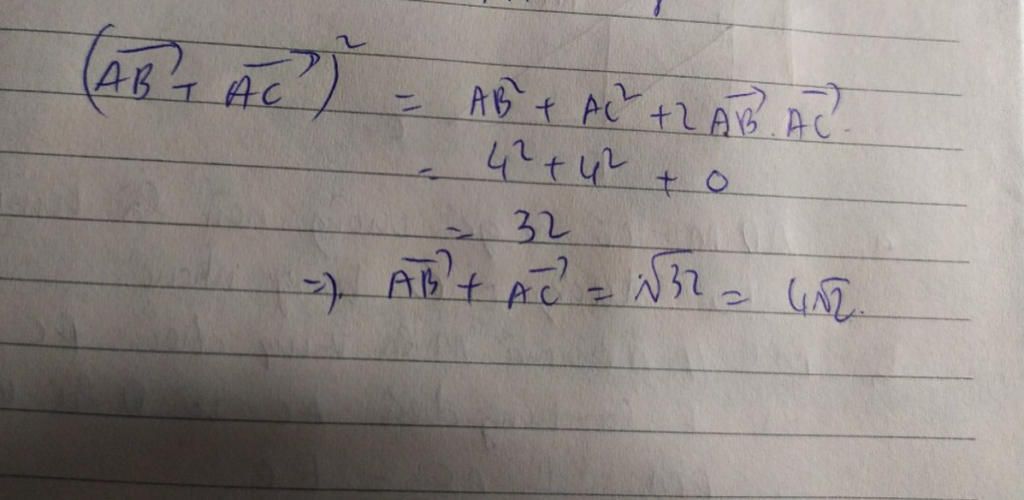 (\overrightarrow{AB} + \overrightarrow{AC})² = AB² + AC² + 2 \overrightarrow{AB} . \overrightarrow{AC} .
= 4² + 4² + 0
= 32
=> . \overrightarrow{AB} + \overrightarrow{AC} = √32 = 4√2 .